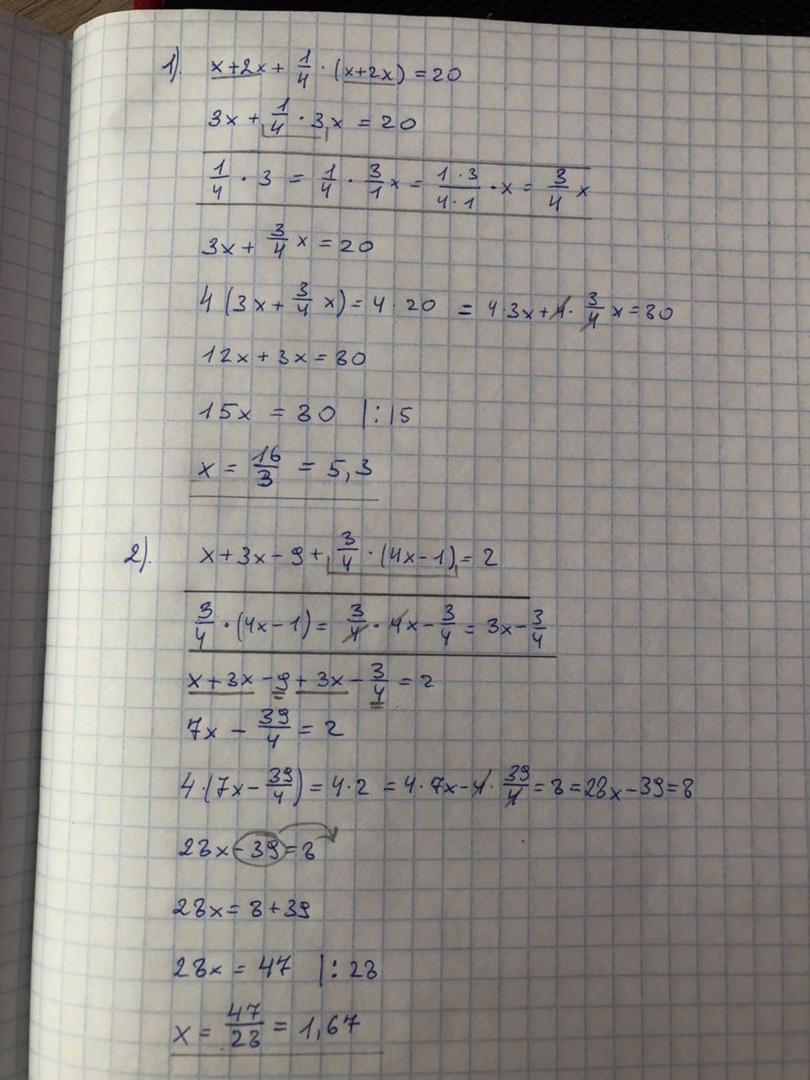 1). x+2x+ 1/4 · (x+2x) = 20
3x + 1/4 · 3x = 20
1/4 · 3 = 1/4 · 3/1 x = 1·3/4·1 · x = 3/4 x
3x + 3/4 x = 20
4 (3x + 3/4 x) = 4 · 20 = 4·3x + 4 · 3/4 x = 80
12x + 3x = 80
15x = 80 |:15
x = 16/3 = 5,3
2). x+3x-9+ 3/4 · (4x-1) = 2
3/4 · (4x-1) = 3/4 · 4x - 3/4 = 3x - 3/4
x+3x-9+3x- 3/4 = 2
7x - 39/4 = 2
4·(7x - 39/4) = 4·2 = 4·7x - 4 · 39/4 = 8 = 28x-39=8
28x-39=8
28x = 8+39
28x = 47 |:28
x = 47/28 = 1,67